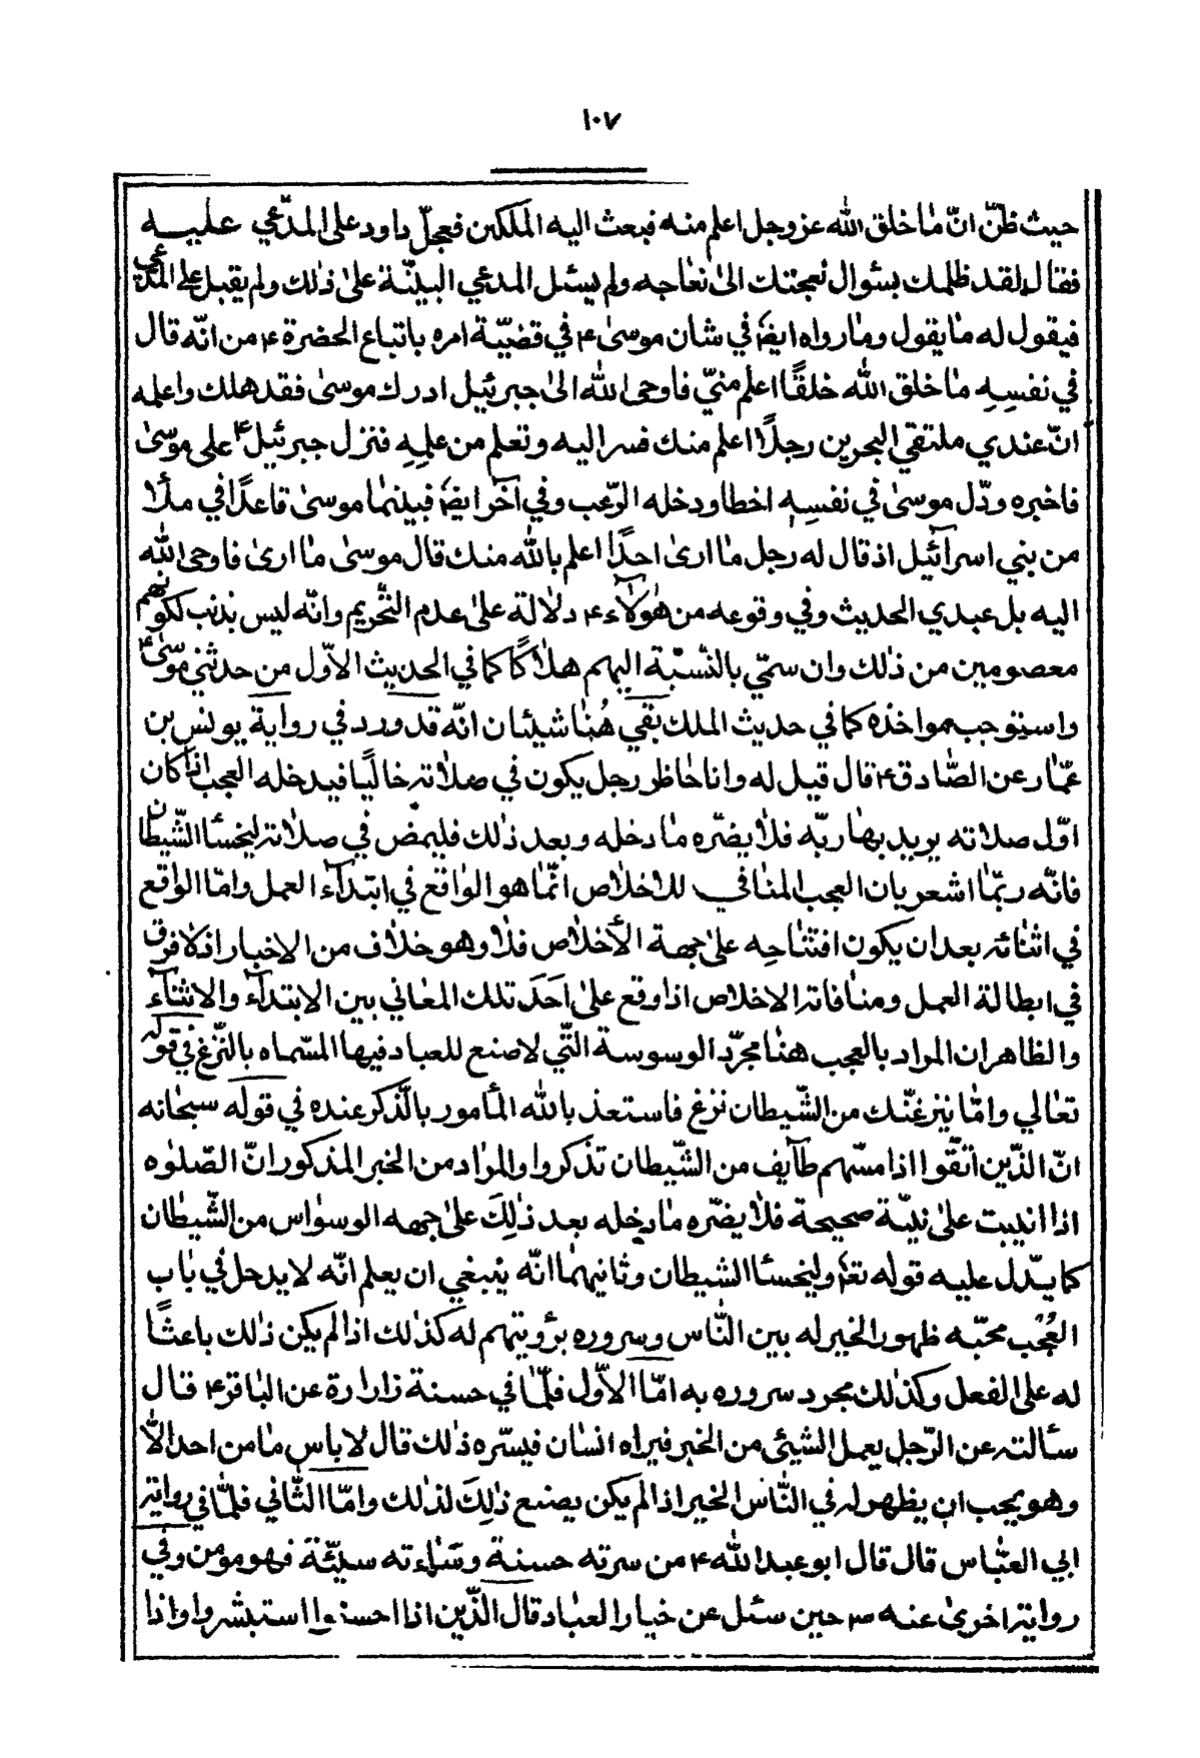 ١٠٧
حيث ظنّ انّ ما خلق الله عز وجل اعلم منه فبعث اليه الملكين فعجلّ داود على المدّعي عليه
فقال لقد ظلمك بسئوال نعجتك الىٰ نعاجه ولم يسئل المدعي البيّنة علىٰ ذٰلك ولم يقبل على المدّعي
فيقول له ما يقول وما رواه ايضا في شان موسىٰ ع في قضيّة امره باتباع الحضرة ع من انّه قال
في نفسِهِ ما خلق الله خلقًا اعلم منّي فاوحى الله الىٰ جبرئيل ادرك موسىٰ فقد هلك واعلمه
انّ عندي ملتقي البحرين رجلًا اعلم منك فسر اليه وتعلم من علمِهِ فنزل جبرئيل ع على موسىٰ
فاخبره ودّل موسىٰ في نفسِهِ اخطا ودخله الرّعب وفي آخر ايضا فبينما موسىٰ قاعدًا في ملأ
من بني اسرآئيل اذ قال له رجل ما ارىٰ احدًا اعلم بالله منك قال موسىٰ ما ارىٰ فاوحى الله
اليه بل عبدي الحديث وفي وقوعه من هٰولآء ع دلالة علىٰ عدم التّحريم وانّه ليس بذنب لكونهم
معصومين من ذٰلك وان سمّي بالنّسبة اليهم هلاكًا كما في الحديث الاوّل من حدثني موسىٰ ع
واستوجب مواخذه كما في حديث الملك بقي هُنا شيئان انّه قد ورد في رواية يونس بن
عمّار عن الصّادق ع قال قيل له وانا حاظر رجل يكون في صلاته خاليًا فيدخله العجب اذا كان
اوّل صلاته يريد بها ربّه فلا يضّره ما دخله وبعد ذٰلك فليمض في صلاته ليخسأ الشّيطان
فانّه ربّما اشعر بان العجب المنافي للاخلاص انّما هو الواقع في ابتدآء العمل وامّا الواقع
في اثنائه بعد ان يكون افتتاحِه علىٰ جهة الأخلاص فلا وهو خلاف من الاخبار اذ لا فرق
في ابطالة العمل ومنافاته الاخلاص اذا وقع علىٰ اَحَدَ تلك المعاني بين الابتدآء والاثنآء
والظاهر ان المراد بالعجب هنا مجرّد الوسوسة التّي لا صنع للعباد فيها المسّماه بالنّزغ في قوله
تعالي وامّا ينزغنّك من الشّيطان نزغ فاستعذ بالله المأمور بالذّكر عنده في قوله سبحانه
انّ الذّين اتقّوا اذا مسّهم طآيف من الشّيطان تذكروا والمراد من الخبر المذكور انّ الصّلوٰه
اذا انبيت علىٰ نيّة صحيحة فلا يضّره ما دخله بعد ذٰلِكَ علىٰ جهه الوسواس من الشّيطان
كما يدّل عليه قوله تعا وليخسأ الشيطان وثانيهما انّه ينبغي ان يعلم انّه لا يدحل في باب
العُجْب محبّه ظهور الخير له بين النّاس وسروره برؤيتهم له كذٰلك اذا لم يكن ذٰلك باعثًا
له على الفعل وكذٰلك مجرد سروره به امّا الاّول فلّما في حسنة زارارة عن الباقر ع قال
سئالته عن الرّجل يعمل الشيئى من الخير فيراه انسان فيسّره ذٰلك قال لا باس ما من احد الّا
وهو يجب ان يظهر له في النّاس الخير اذا لم يكن يصنع ذٰلِكَ لذٰلك وامّا الثّاني فلمّا في رواية
ابي العبّاس قال قال ابو عبد الله ع من سرته حسنة وسآءته سيّئة فهو مؤمن وفي
رواية اخرىٰ عنه ص حين سئل عن خيار العباد قال الذّين اذا احسنوا استبشروا واذا